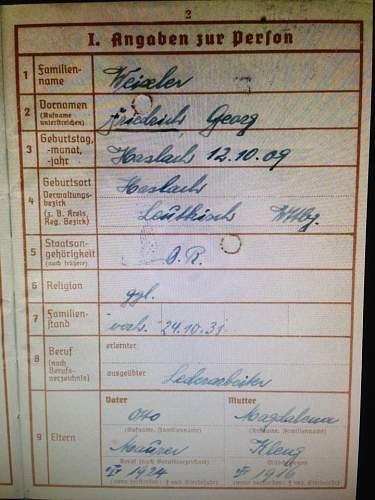 2
I. Angaben zur Person
1 Familien-
name
Weixler
2 Vornamen
(Rufname
unterstreichen)
Friedrich Georg
3 Geburtstag,
-monat,
-jahr
Haslach 12.10.09
4 Geburtsort
Verwaltungs-
bezirk
(z. B. Kreis,
Reg. Bezirk)
Haslach
Leutkirch Wttbg.
5 Staatsan-
gehörigkeit
(auch frühere)
D. R.
6 Religion
ggl.
7 Familien-
stand
verh. 24.10.31
8 Beruf
(nach
Berufs-
verzeichnis)
erlernter
ausgeübter
Lederarbeiter
9 Eltern
Vater Mutter
Otto Magdalena
(Rufname, Familienname) (Rufname, Familienname)
Maurer
Beruf (nach Berufsverzeichnis)
1924